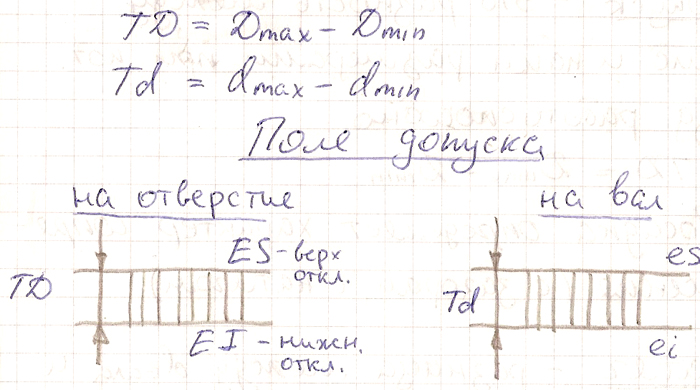 TD = Dmax - Dmin
Td = dmax - dmin
Поле допуска
на отверстие
ES - верх
откл.
TD
EI - нижн.
откл.
на вал
es
Td
ei